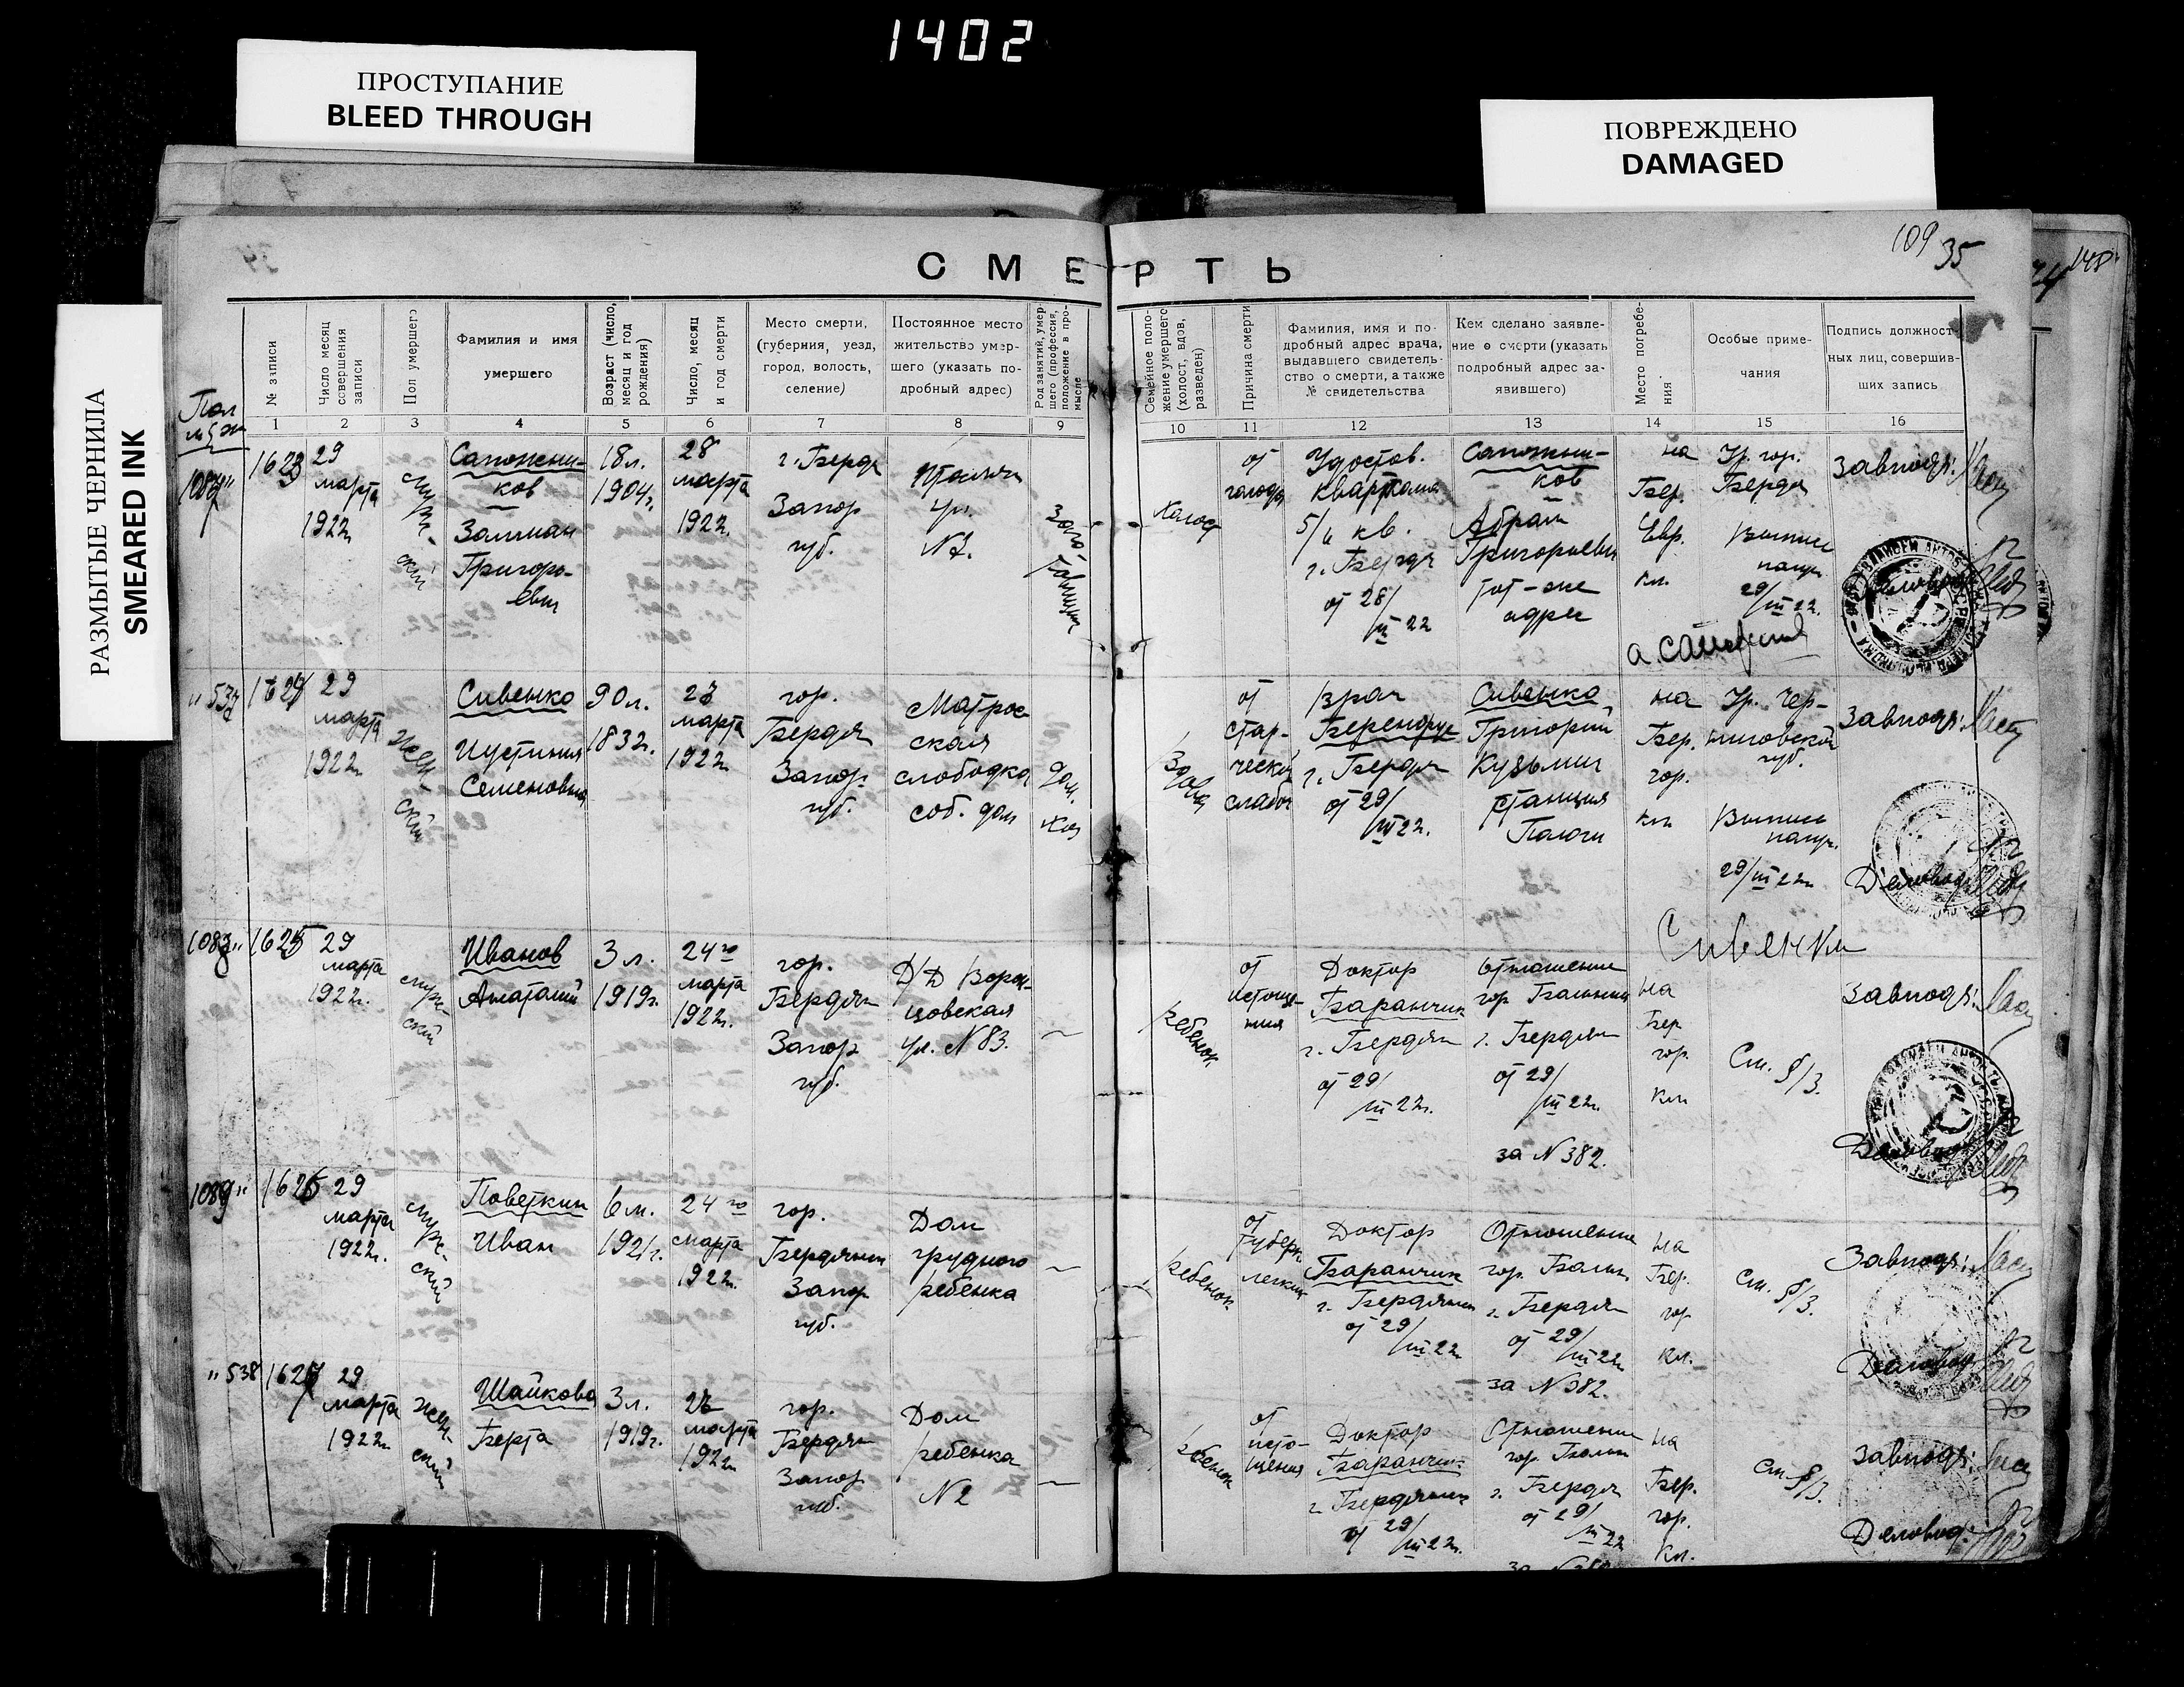 1402
ПРОСТУПАНИЕ
BLEED THROUGH
ПОВРЕЖДЕНО
DAMAGED
РАЗМЫТЫЕ ЧЕРНИЛА
SMEARED INK
109 35
148
СМЕРТЬ
№ записи
Число месяц совершения записи
Пол умершего
Фамилия и имя умершего
Возраст (число, месяц и год рождения)
Число, месяц и год смерти
Место смерти, (губерния, уезд, город, волость, селение)
Постоянное место жительство умершего (указать подробный адрес)
Род занятий, умершего (профессия, положение в промысле
Семейное положение умершего (холост, вдов, разведен)
Причина смерти
Фамилия, имя и подробный адрес врача, выдавшего свидетельство о смерти, а также № свидетельства
Кем сделано заявление о смерти (указать подробный адрес заявившего)
Место погребения
Особые примечания
Подпись должностных лиц, совершивших запись
1 2 3 4 5 6 7 8 9 10 11 12 13 14 15 16
1087
1623
29
марта
1922г.
мужской
Сапожни-
ков
Залман
Григорь-
евич
18 л.
1904г.
28
марта
1922г.
г. Бердя
Запор
губ.
ул.
N 7.
Холост
от
голода
Удостов.
квартала
5/6 кв.
г. Бердя
от 28/III 22
Сапожни-
ков
Абрам
Григорьевич
тот-же
адрес
на
Бер.
Евр.
кл.
Гр. гор.
Бердя
Выпись
29/III 22.
Завподъ:
" 537
1624
29
марта
1922г.
женский
Сивенко
Иустиния
Семеновна
90 л.
1832г.
27
марта
1922г.
гор.
Бердян
Запор
губ.
Матрос
ская
слободка
соб. дом
дом.
хоз
Вдова
от
стар-
ческой
слабос
Врач
г. Бердян
от 29/III 22.
Сивенко
Григорий
Кузьмич
станция
Пологи
на
Бер.
гор.
кл.
Гр. Чер-
ниговской
губ.
Выпись
29/III 22г.
Деловод
Сивенко
1088
1625
29
марта
1922г.
мужской
Иванов
Анатолий
3 л.
1919г.
24го
марта
1922г.
гор.
Бердян
Запор
губ.
Д/Д Ворон-
цовская
ул. N 83.
ребенок
от
истоще-
ния
Доктор
Баранчик
г. Бердян
от 29/III 22г.
Отношение
гор Больниц
г. Бердян
от 29/III 22г.
за N 382.
на
Бер
гор.
кл.
См. 8/3.
Завподъ:
Деловод
1089
1626
29
марта
1922г.
мужской
Поветкин
Иван
6 м.
1921г.
24го
марта
1922г.
гор.
Бердянск
Запор
губ.
Дом
грудного
ребенка
ребенок
от
туберк
легких
Доктор
Баранчик
г. Бердянск
от 29/III 22г.
Отношение
гор. Больн.
г. Бердян
от 29/III 22г.
за N 382.
на
Бер.
гор
кл.
См. 8/3.
Завподъ:
Деловод
" 538
1627
29
марта
1922г.
женский
Шайкова
Берта
3 л.
1919г.
марта
1922г.
гор.
Бердян
Запор
губ.
Дом
ребенка
N 2
ребенок
от
исто-
щения
Доктор
Баранчик
г. Бердянск
от 29/III 22г.
Отношение
гор. Больн
г. Бердян
от 29/III 22
на
Бер.
гор.
кл.
См. 8/3.
Завподъ:
Деловод.